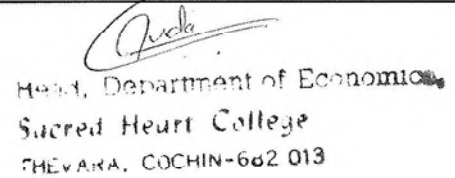 Head, Department of Economics
Sacred Heart College
THEVARA, COCHIN-682 013